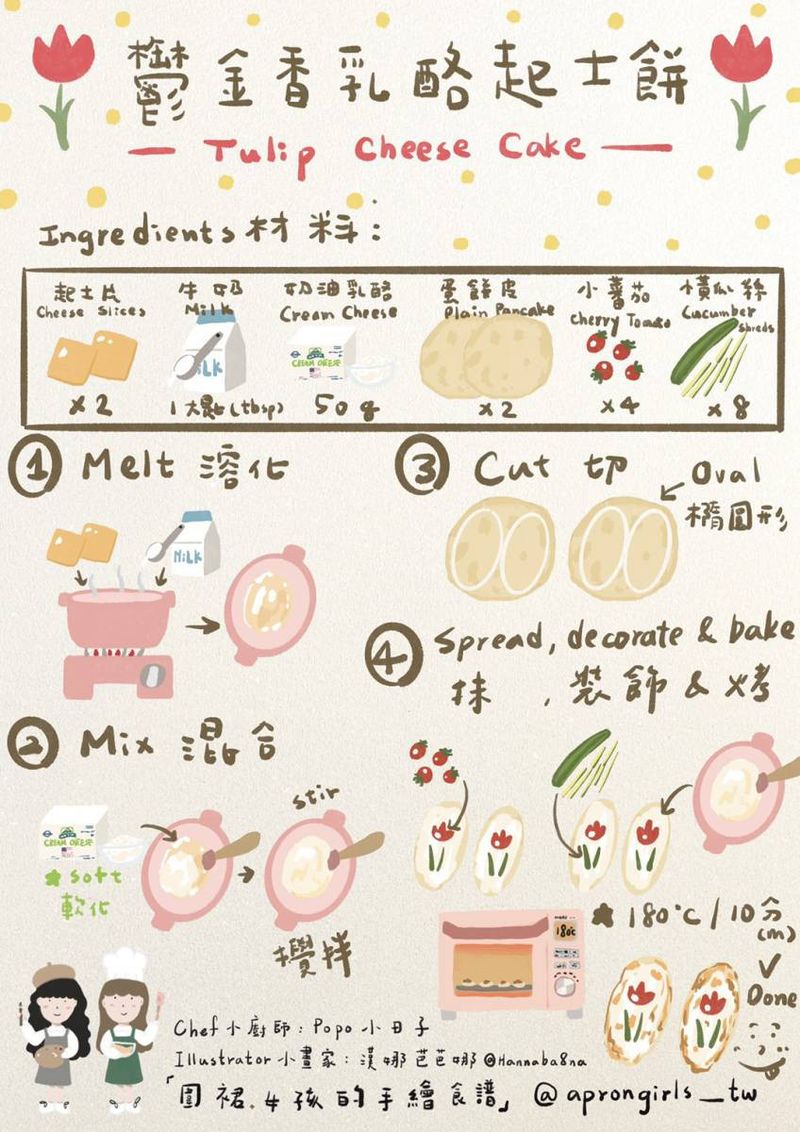 鬱金香乳酪起士餅
Tulip Cheese Cake
Ingredients 材料:
起士片
Cheese Slices
x2
牛奶
Milk
MiLK
1大匙(tbsp)
奶油乳酪
Cream Cheese
CREAM CHEESE
50g
蛋餅皮
Plain Pancake
x2
小蕃茄
Cherry Tomato
x4
橫瓜絲
Cucumber
shreds
x8
① Melt 溶化
MiLK
② Mix 混合
CREAM CHEESE
soft
軟化
stir
攪拌
③ Cut 切
Oval
橢圓形
④ Spread, decorate & bake
抹 , 裝飾 & 烤
180℃
180℃/10分
(m)
Done
Chef 小廚師: Popo 小日子
Illustrator 小畫家: 漢娜芭芭娜 @Hannaba8na
「圍裙女孩的手繪食譜」 @aprongirls_tw